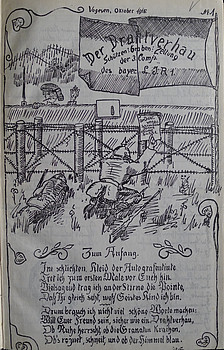 Vogesen, Oktober 1915
№ 1.
Der Drahtverhau
Schützen-Graben-Zeitung
der 3. Comp.
des bayer. L.J.R.1
Zum Anfang.
Im schlichten Kleid der Autografentinte
Tret ich zum ersten Male vor Euch hin.
und trag ich an der Stirne die Pointe,
Daß Ihr gleich seht, weß Geistes Kind ich bin.
Drum brauch ich nicht viel schöne Worte machen:
Will Euer Freund sein, sicher wie ein Drahtverhau,
Ob Ruhe herrscht, ob die Granaten krachen,
Ob's regnet, schneit, und ob der Himmel blau.